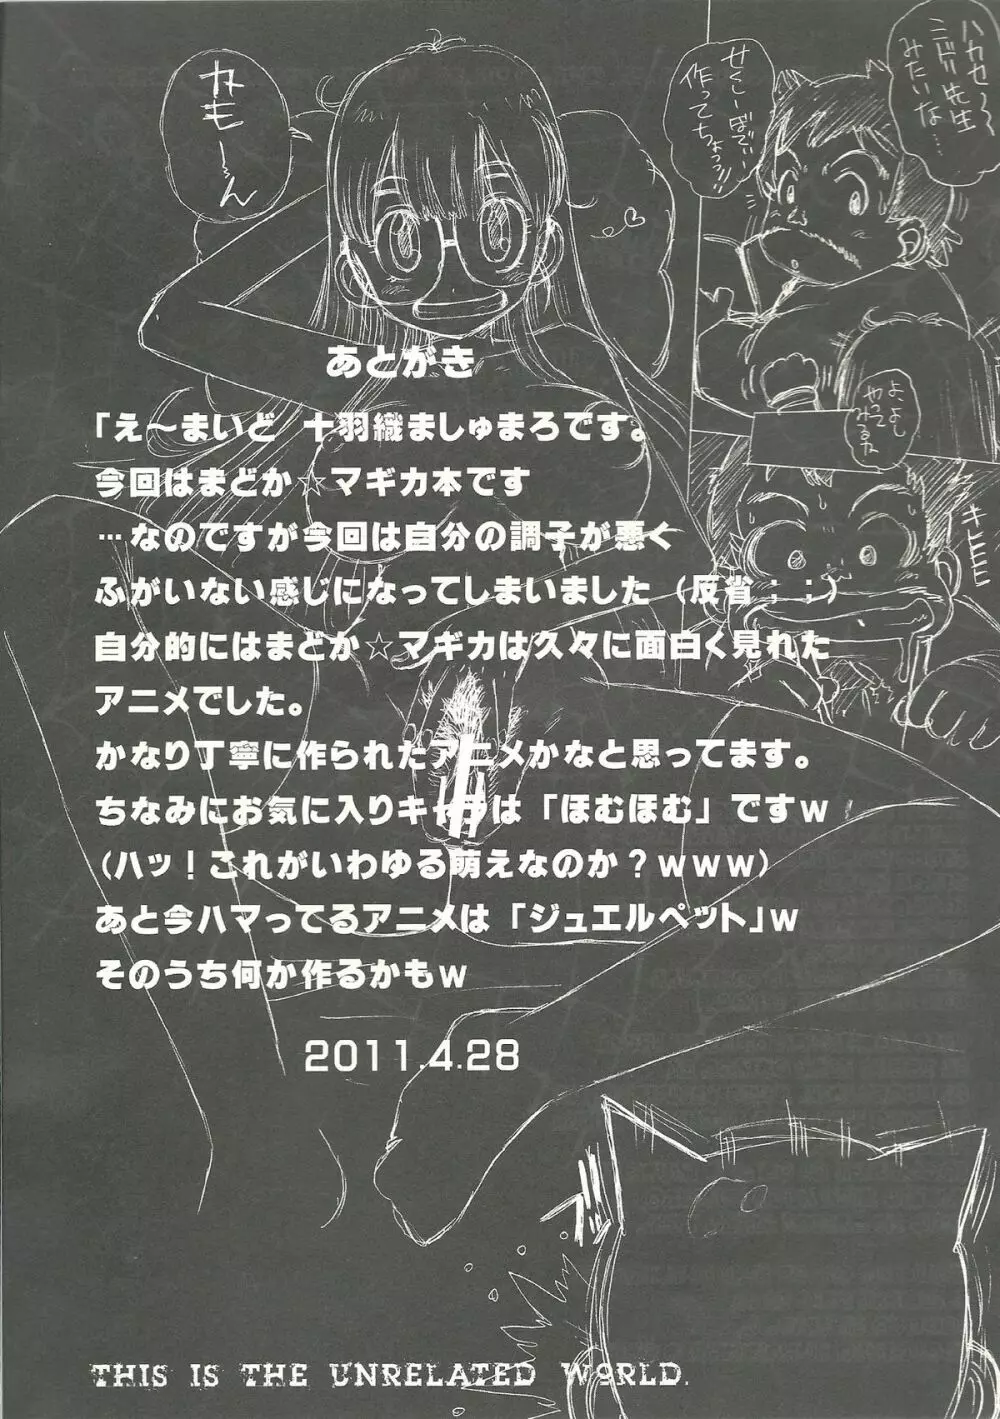 あとがき
「え〜まいど　十羽織ましゅまろです。
今回はまどか☆マギカ本です
…なのですが今回は自分の調子が悪く
ふがいない感じになってしまいました（反省；；）
自分的にはまどか☆マギカは久々に面白く見れた
アニメでした。
かなり丁寧に作られたアニメかなと思ってます。
ちなみにお気に入りキャラは「ほむほむ」ですｗ
（ハッ！これがいわゆる萌えなのか？ｗｗｗ）
あと今ハマってるアニメは「ジュエルペット」ｗ
そのうち何か作るかもｗ
2011.4.28
THIS IS THE UNRELATED WORLD.